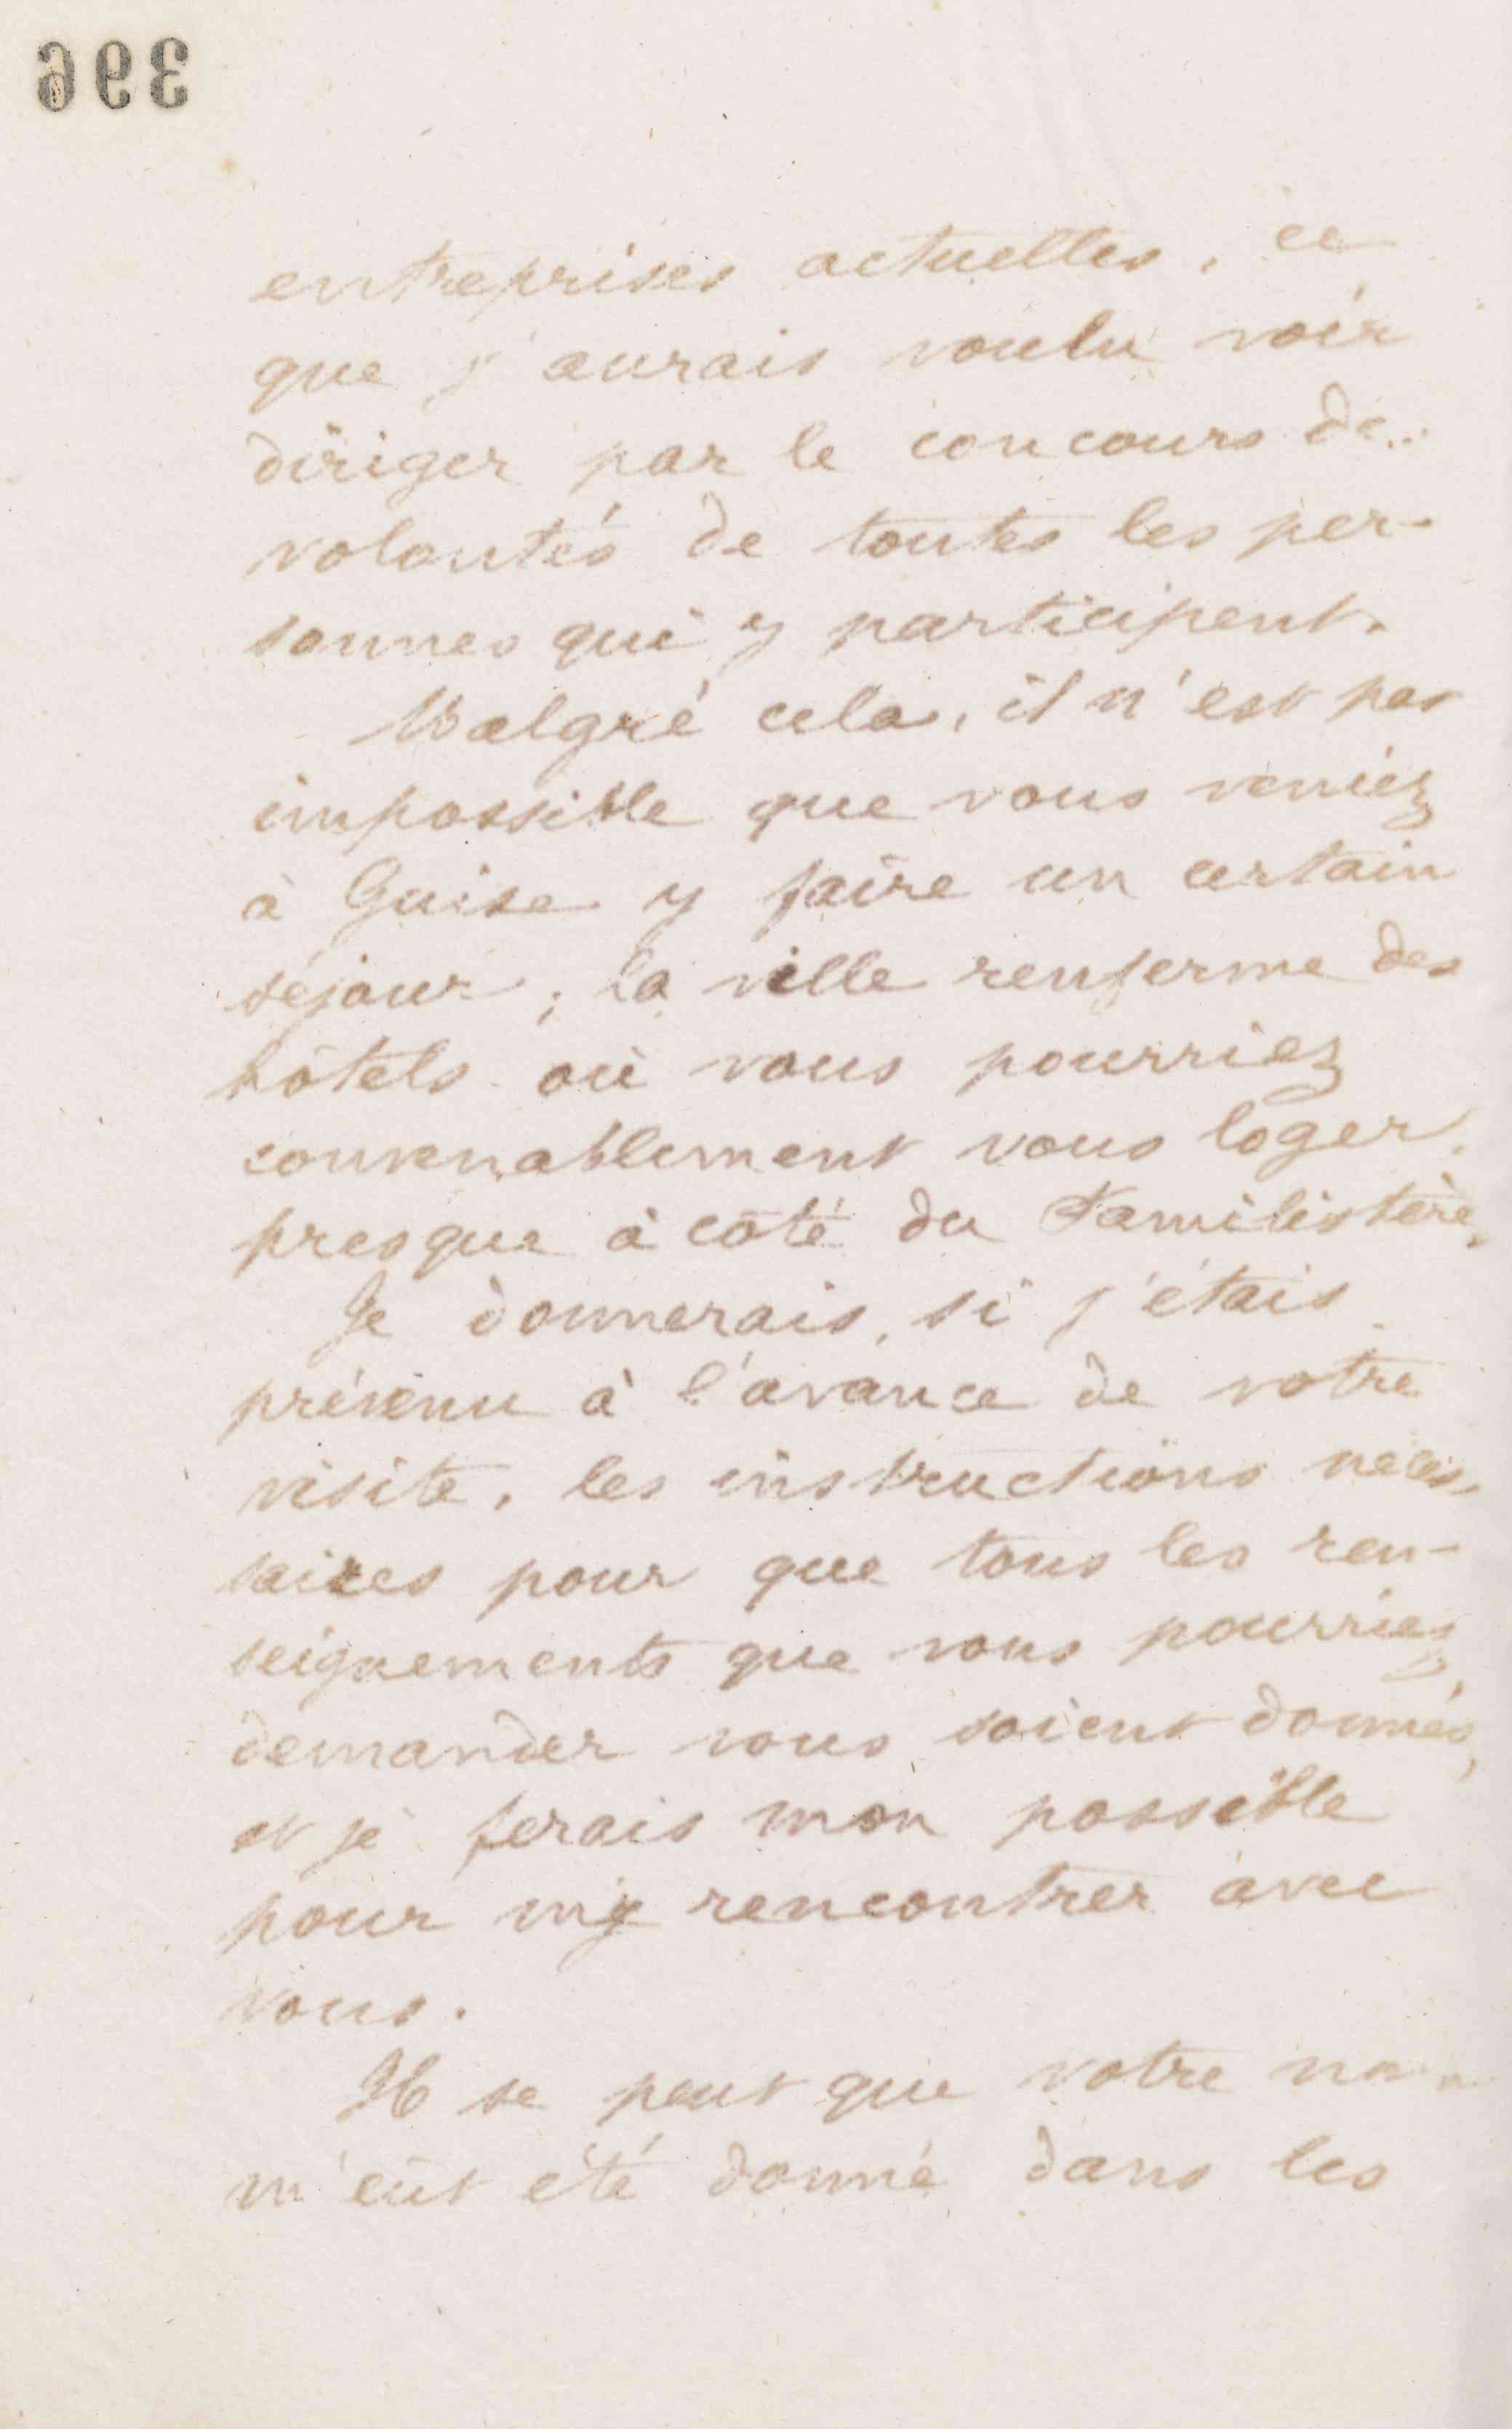 396
entreprises actuelles, ce
que j'aurais voulu voir
diriger par le concours de
volontés de toutes les per-
sonnes qui y participent.
Malgré cela, il n'est pas
impossible que vous veniez
à Guise y faire un certain
séjour ; la ville renferme des
hôtels où vous pourriez
convenablement vous loger
presque à côté du Familistère.
Je donnerais, si j'étais
prévenu à l'avance de votre
visite, les instructions néces-
saires pour que tous les ren-
seignements que vous pourriez
demander vous soient donnés,
et je ferais mon possible
pour m'y rencontrer avec
vous.
Il se peut que votre nom
m'eût été donné dans les